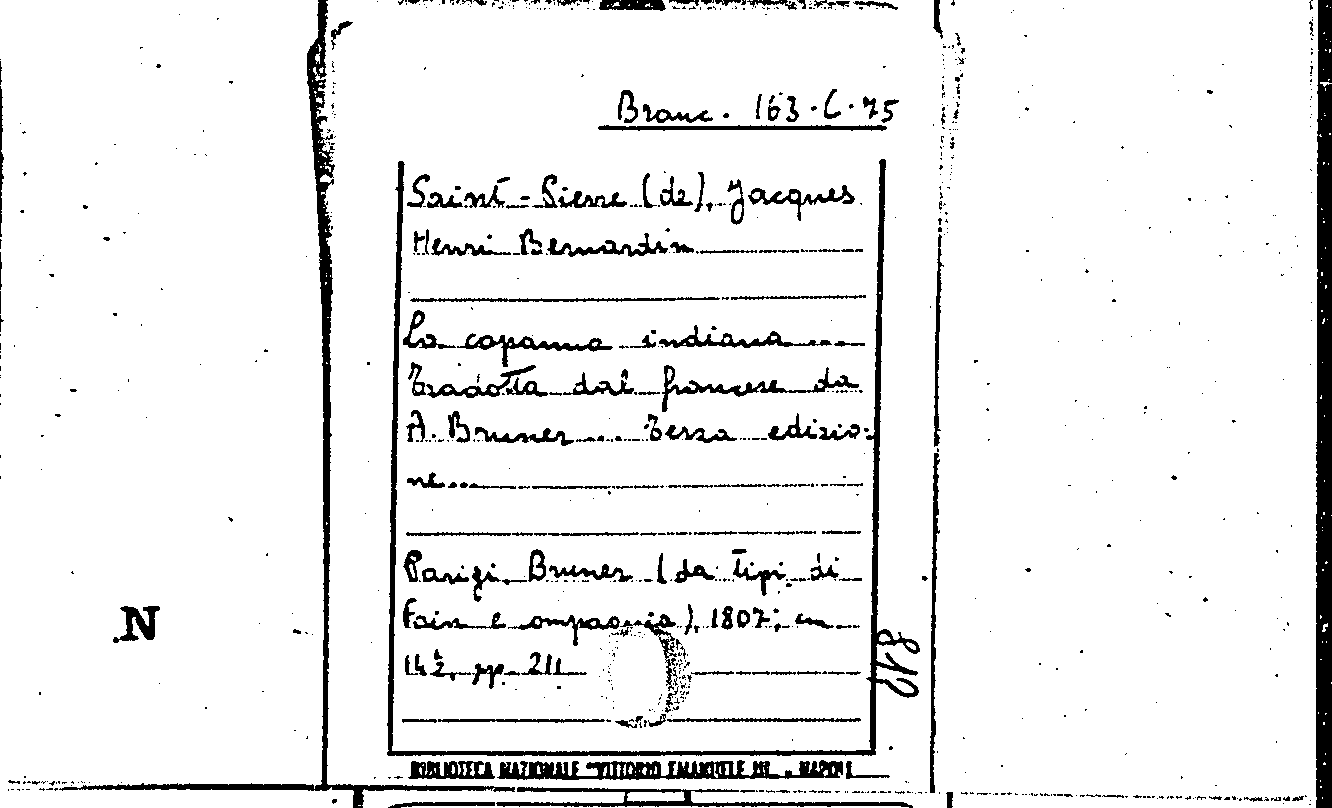 Branc. 163.C.75
Saint-Pierre (de), Jacques
Henri Bernardin
La capanna indiana ....
Tradotta dal francese da
A. Bruner ... Terza edizio=
ne....
Parigi, Bruner (da tipi di
Fain e compagnia), 1807; cm
14½, pp. 211
812
N
BIBLIOTECA NAZIONALE "VITTORIO EMANUELE III" - NAPOLI